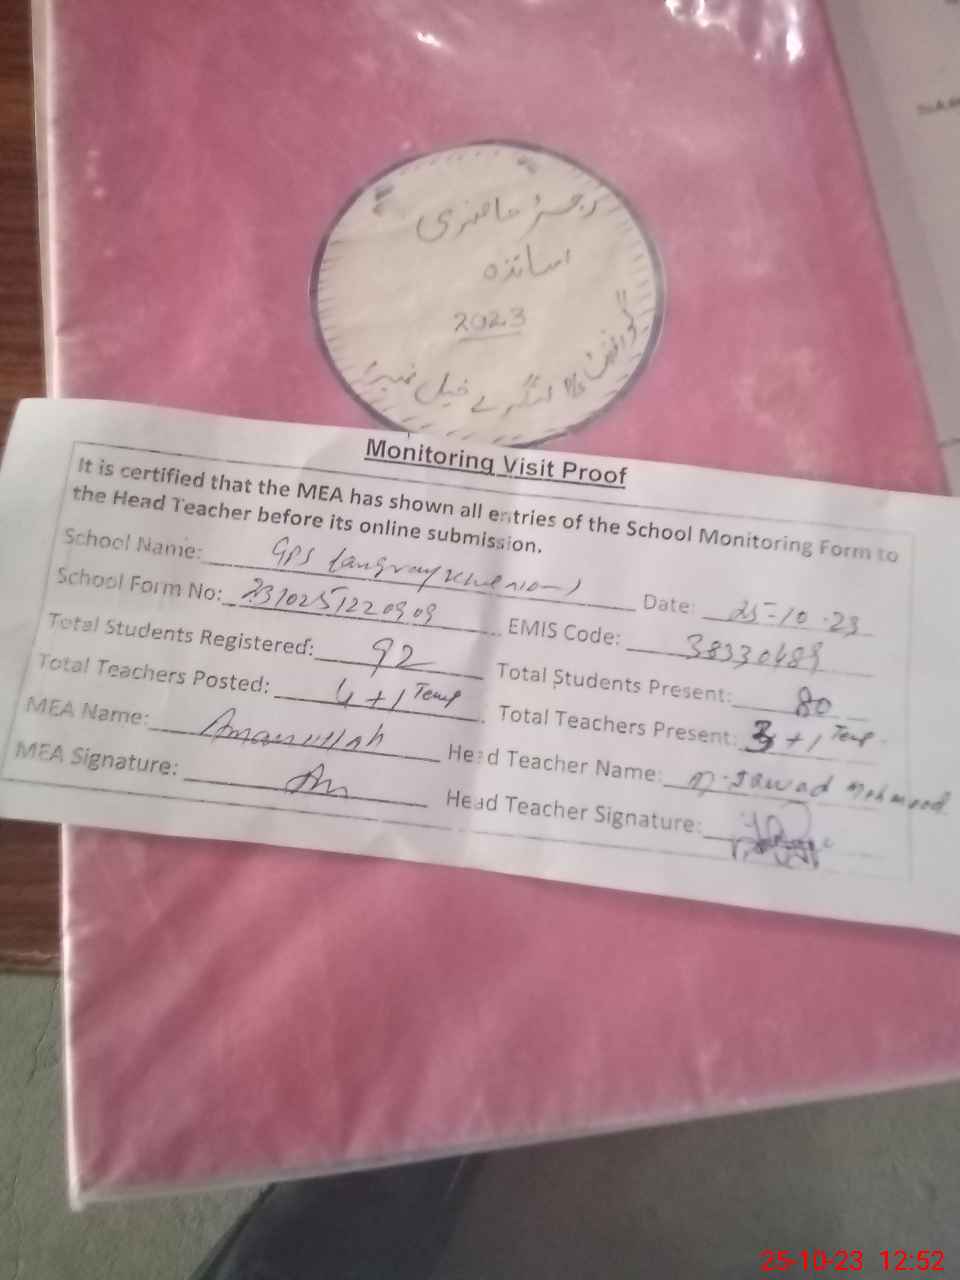 رجسٹر حاضری
اساتذہ
2023
خیل نمبر 1
Monitoring Visit Proof
It is certified that the MEA has shown all entries of the School Monitoring Form to
the Head Teacher before its online submission.
School Name: GPS
Date: 25-10-23
School Form No: 23102512209 09
EMIS Code: 38330489
Total Students Registered: 92
Total Students Present: 80
Total Teachers Posted: 4+1 Temp
Total Teachers Present: 3+1 Temp
MEA Name: Amanullah
Head Teacher Name: M. Jawad Mahmood
MEA Signature:
Head Teacher Signature:
25-10-23 12:52